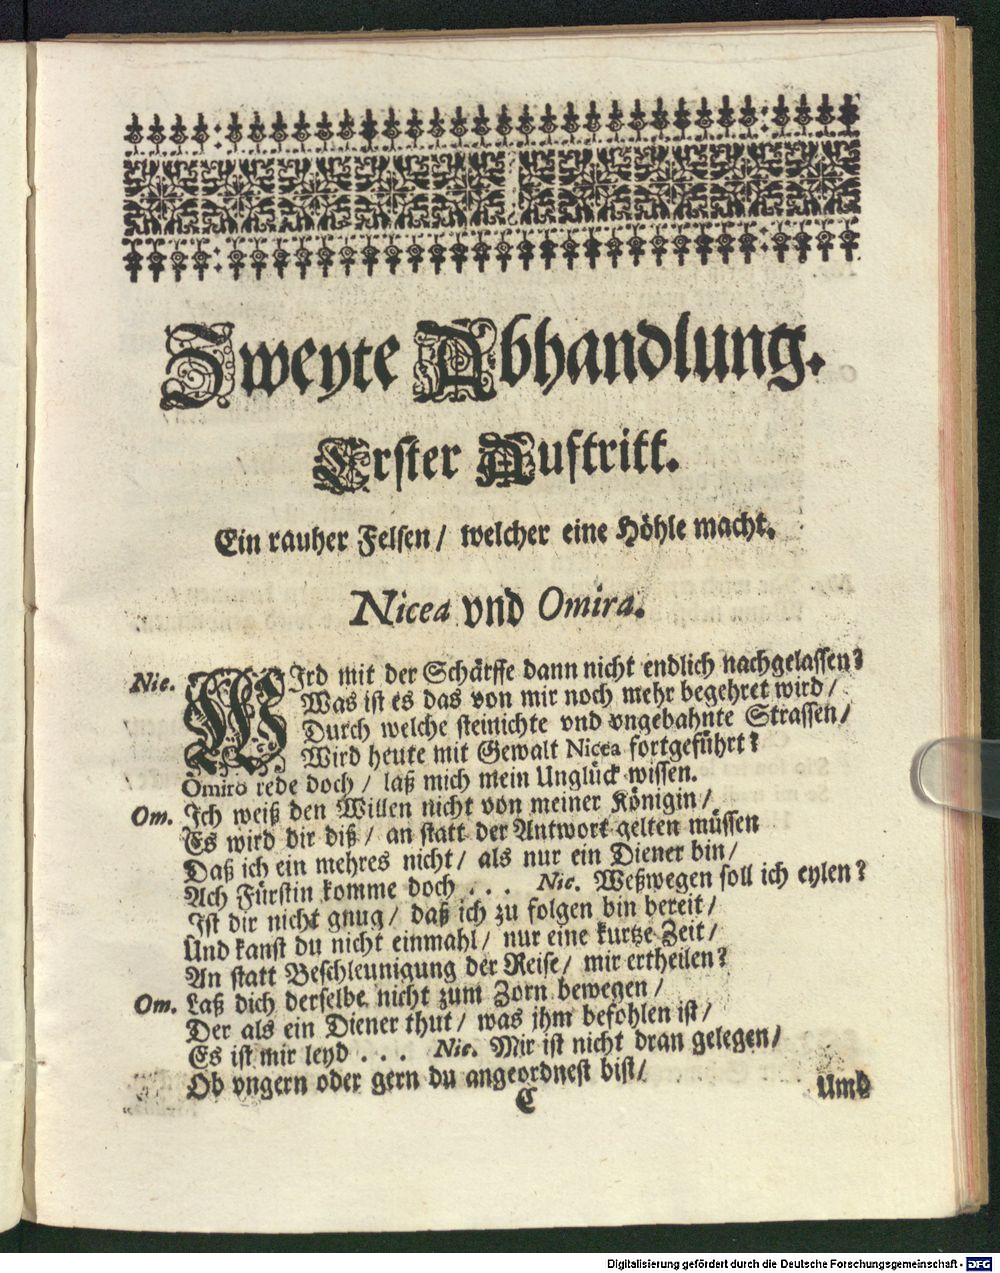 Zweyte Abhandlung.
Erster Auftritt.
Ein rauher Felsen / welcher eine Höhle macht.
Nicea vnd Omira.
Nic. WIrd mit der Schärffe dann nicht endlich nachgelassen?
Was ist es das von mir noch mehr begehret wird /
Durch welche steinichte vnd vngebahnte Strassen /
Wird heute mit Gewalt Nicea fortgeführt?
Omiro rede doch / laß mich mein Unglück wissen.
Om. Ich weiß den Willen nicht von meiner Königin /
Es wird dir diß / an statt der Antwort gelten müssen
Daß ich ein mehres nicht / als nur ein Diener bin /
Ach Fürstin komme doch . . . Nic. Weßwegen soll ich eylen?
Ist dir nicht gnug / daß ich zu folgen bin bereit /
Und kanst du nicht einmahl / nur eine kurtze Zeit /
An statt Beschleunigung der Reise / mir ertheilen?
Om. Laß dich derselbe nicht zum Zorn bewegen /
Der als ein Diener thut / was jhm befohlen ist /
Es ist mir leyd . . . Nic. Mir ist nicht dran gelegen /
Ob vngern oder gern du angeordnest bist /
C
Umb
Digitalisierung gefördert durch die Deutsche Forschungsgemeinschaft - DFG